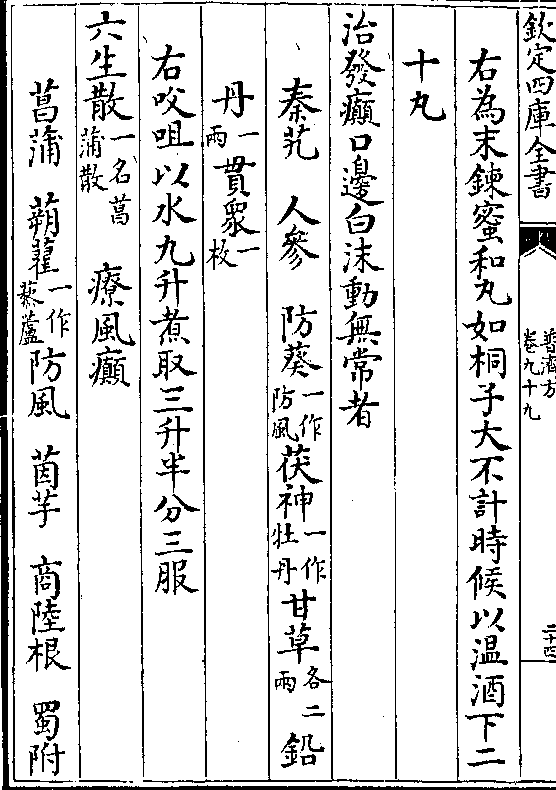 欽定四庫全書
普濟方
卷九十九
二十四
右為末鍊蜜和丸如桐子大不計時候以温酒下二
十丸
治發癲口邊白沫動無常者
秦艽　人參　防葵一作防風茯神一作牡丹甘草各二兩鉛
丹一兩貫衆一枚
右㕮咀以水九升煮取三升半分三服
六生散一名菖蒲散　療風癲
菖蒲　蒴藋一作藜蘆防風　茵芋　商陸根　蜀附